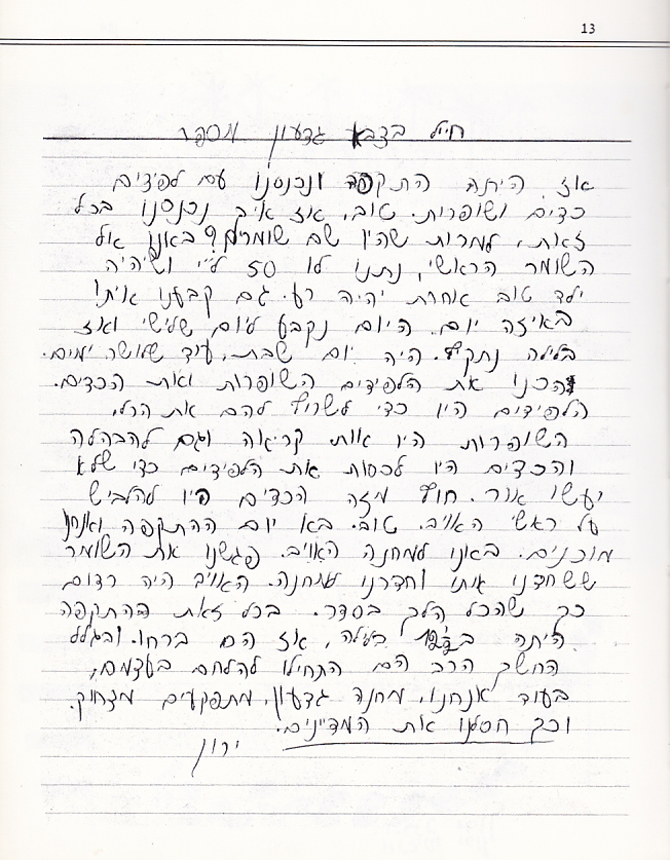 13
חייל בצבא גדעון מספר
אז היתה התקפה ונכנסנו עם לפידים
כדים ושופרות. טוב, אז איך נכנסנו בכל
זאת, למרות שהיו שם שומרים? באנו אל
השומר הראשי, נתנו לו 50 ל"י ושיהיה
ילד טוב אחרת יהיה רע. גם קבענו איתו
באיזה יום. היום נקבע ליום שלישי ואז
בלילה נתקיף. היה יום שבת, עוד שלושה ימים.
הכנו את הלפידים השופרות ואת הכדים.
הלפידים היו כדי לשרוף להם את הכל,
השופרות היו אות קריאה וגם להבהלה
והכדים היו לכסות את הלפידים כדי שלא
יעשו אור. חוץ מזה הכדים היו להלביש
על ראשי האויב. טוב. בא יום ההתקפה ואנחנו
מוכנים. באנו למחנה האויב. פגשנו את השומר
ששחדנו איתו וחדרנו למחנה. האויב היה רדום
כך שהכל הלך בסדר. בכל זאת ההתקפה
היתה בלילה, אז הם ברחו. ובגלל
החשך הרב הם התחילו להלחם בעצמם,
בעוד אנחנו, מחנה גדעון, מתפקעים מצחוק.
וכך חסלנו את המדיינים.
ירון